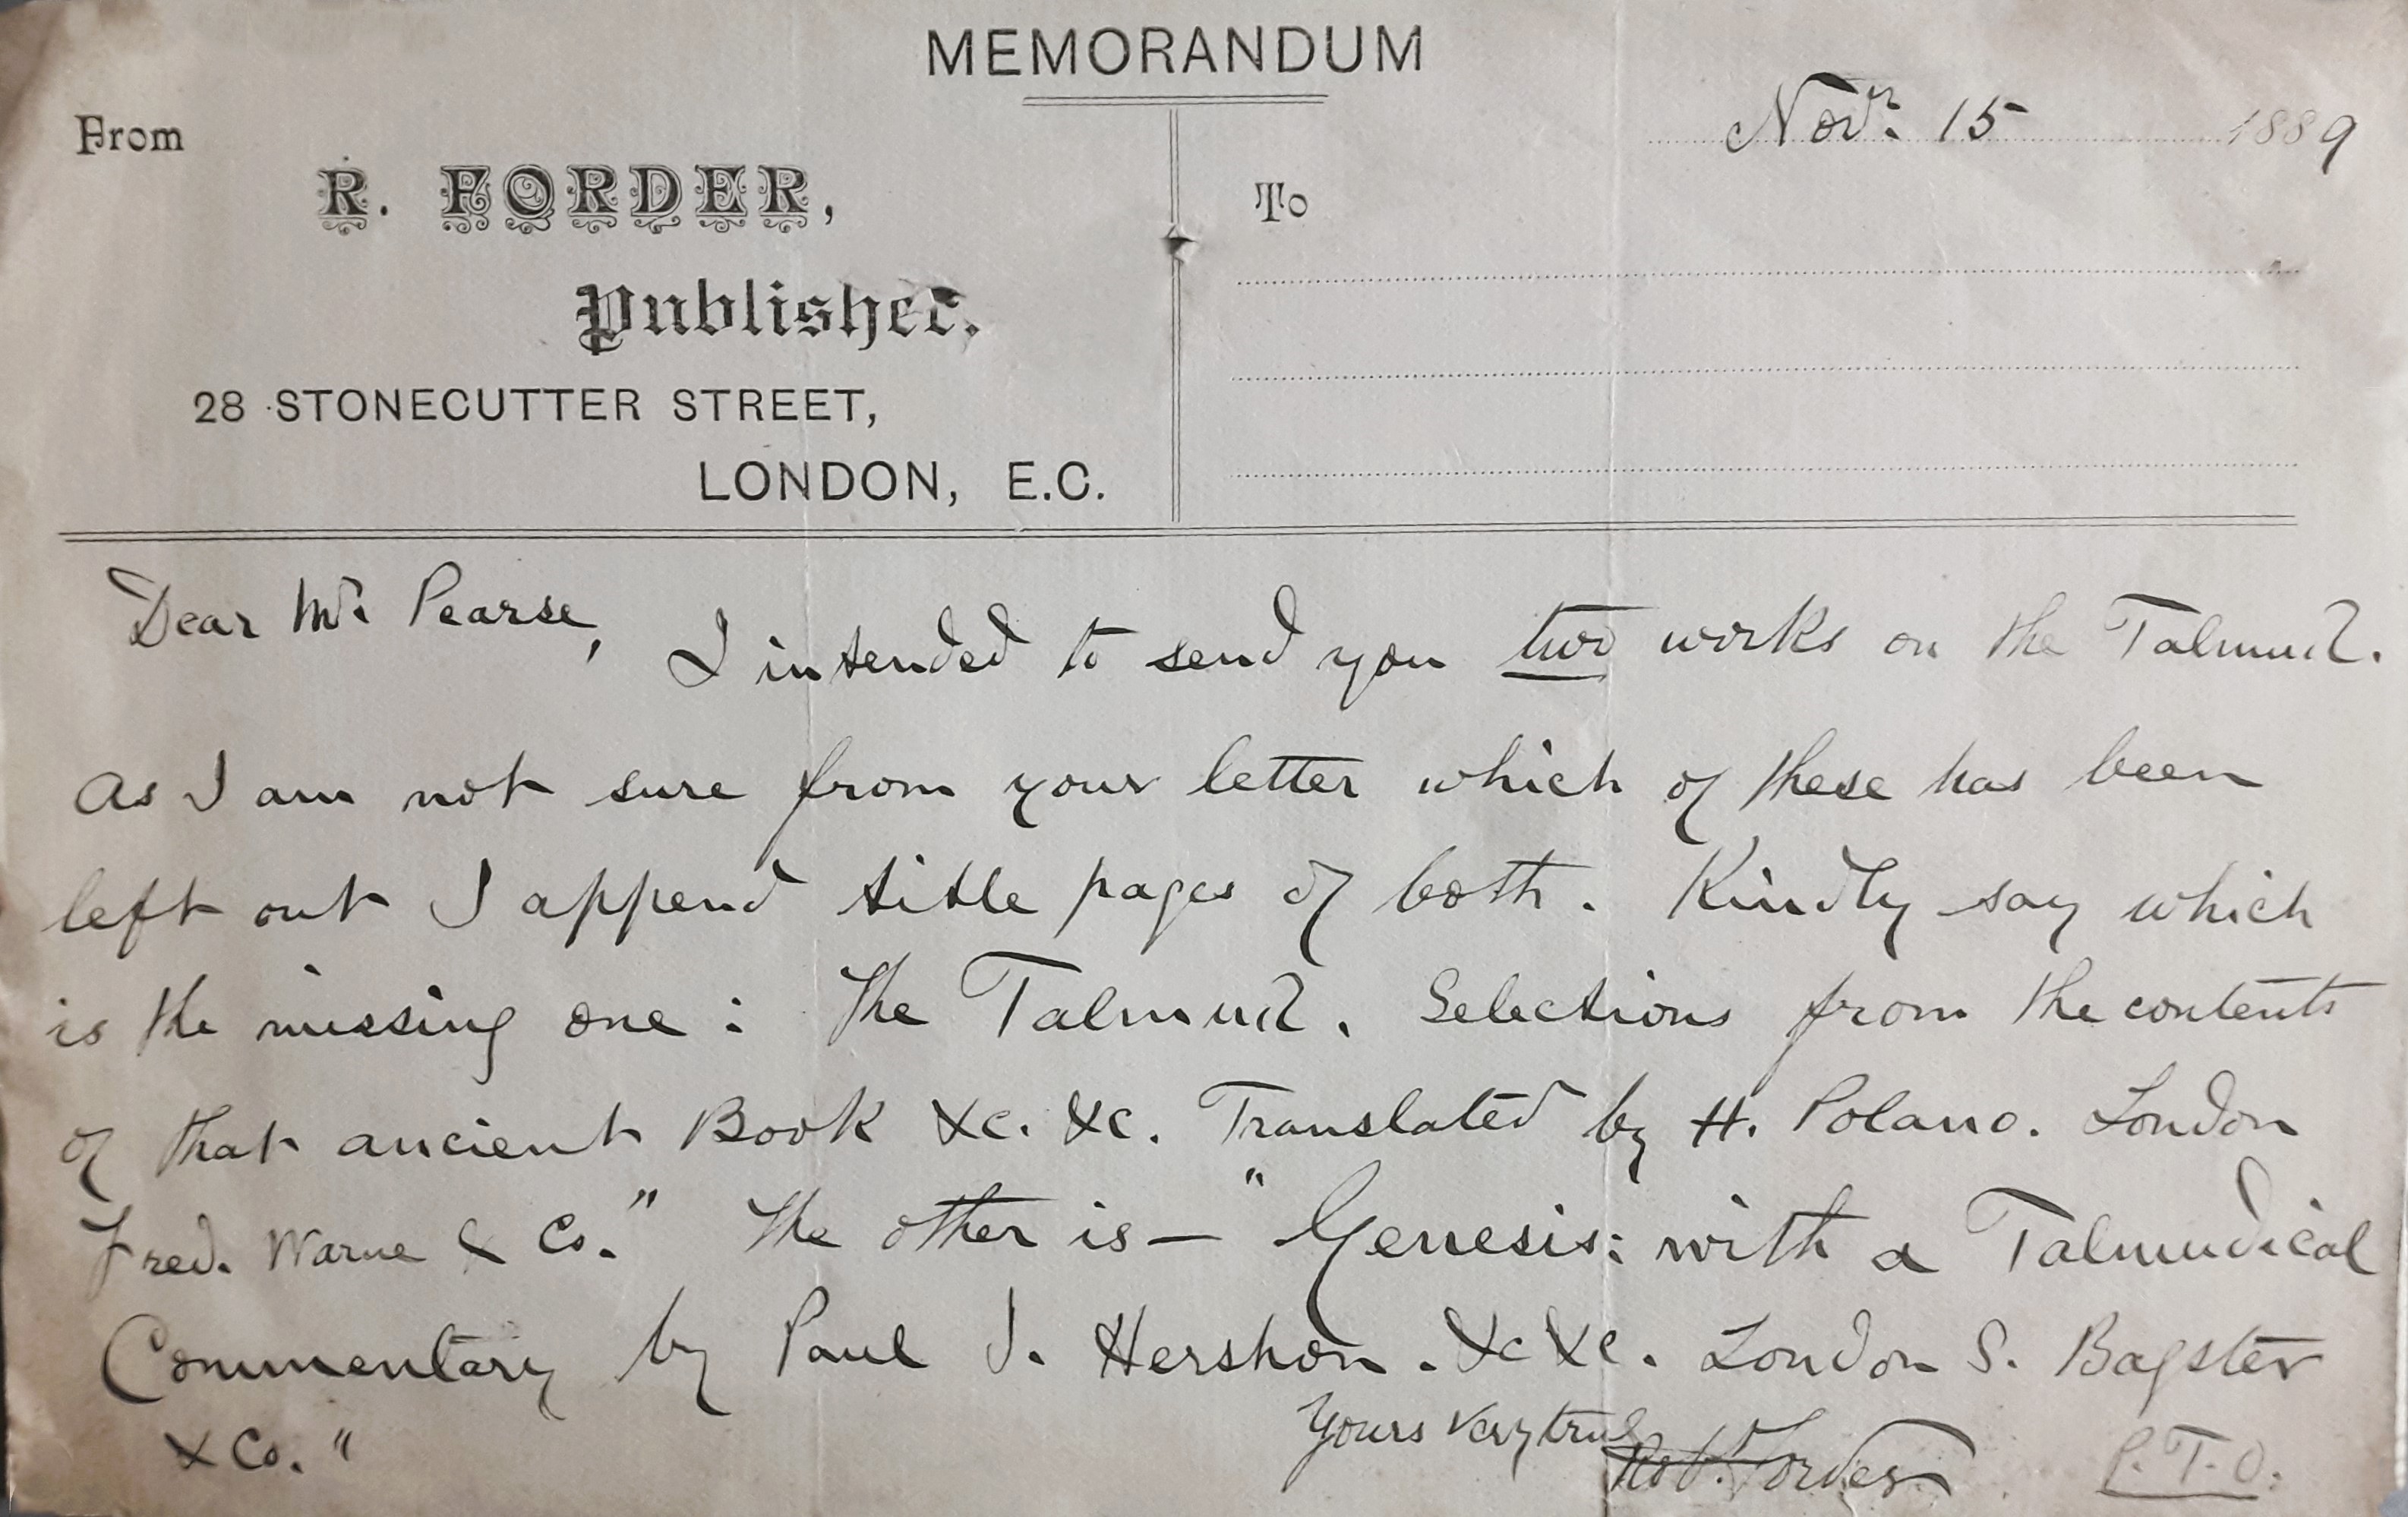 MEMORANDUM
From
R. FORDER,
Publisher.
28 STONECUTTER STREET,
LONDON, E.C.
Novr. 15 1889
To
Dear Mr. Pearse,
I intended to send you two works on the Talmud.
As I am not sure from your letter which of these has been
left out I append title pages of both. Kindly say which
is the missing one: The Talmud. Selections from the contents
of that ancient Book &c. &c. Translated by H. Polano. London
Fred. Warne & Co." The other is — "Genesis: with a Talmudical
Commentary by Paul I. Hershon. &c &c. London S. Bagster
& Co."
Yours very truly
Robt. Forder
P.T.O.